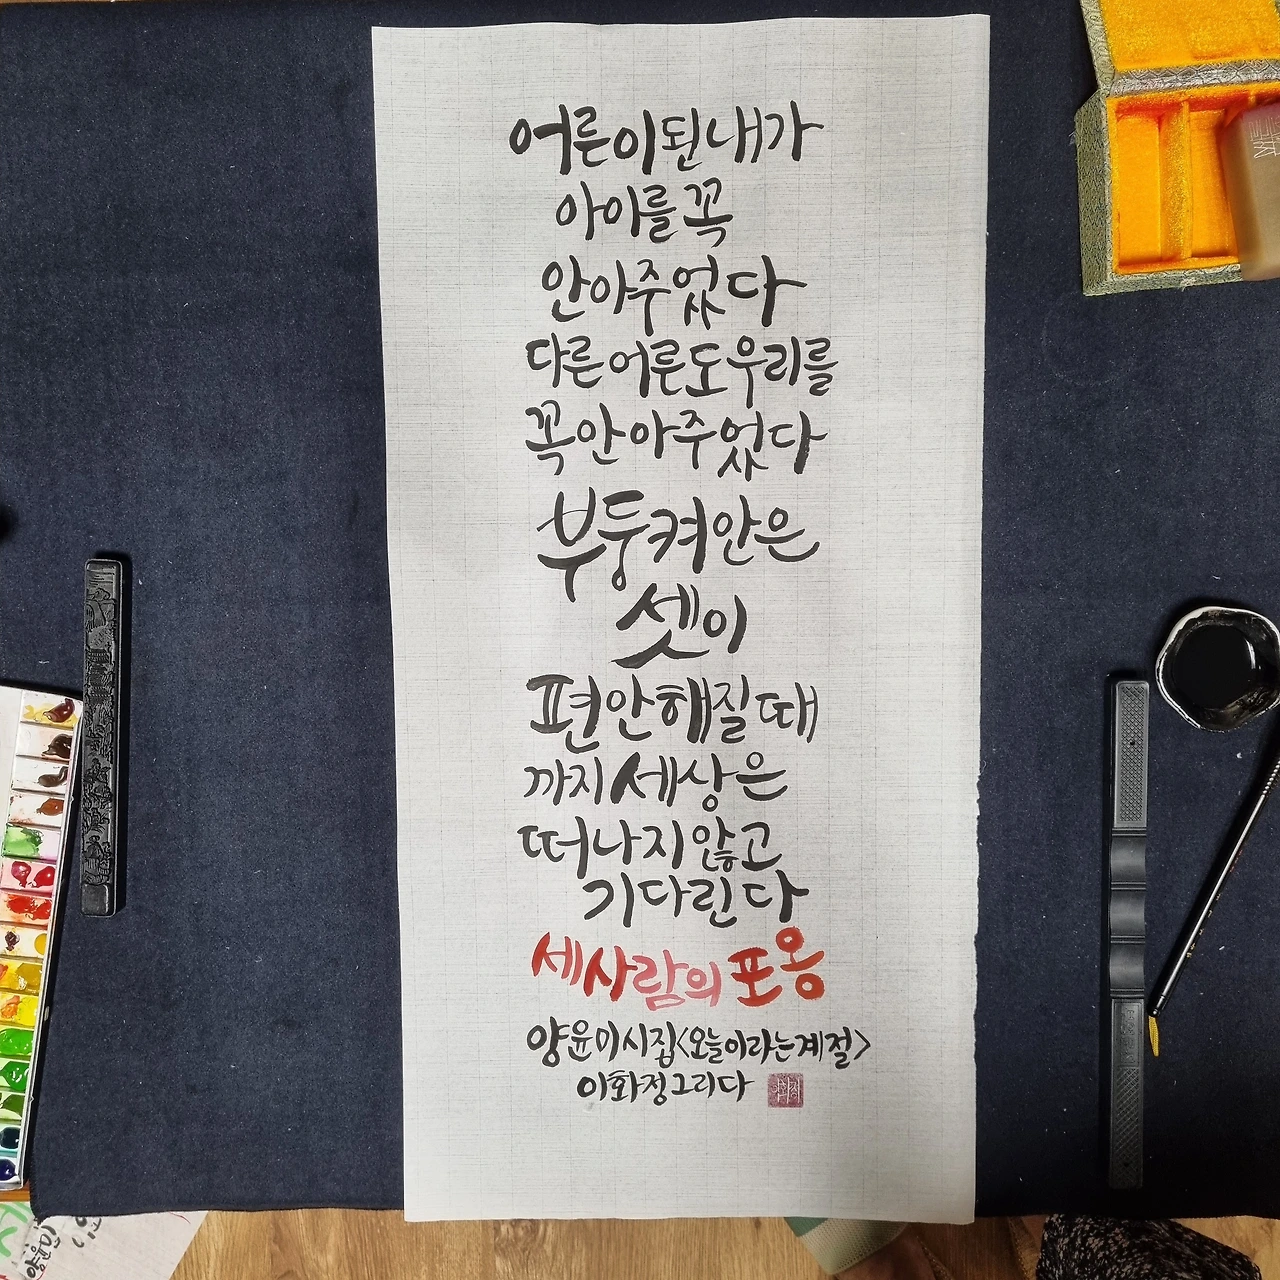 어른이 된 내가
아이를 꼭
안아주었다
다른 어른도 우리를
꼭 안아주었다
부둥켜안은
셋이
편안해질 때
까지 세상은
떠나지 않고
기다린다
세 사람의 포옹
양윤미 시집 <오늘이라는 계절>
이화정 그리다